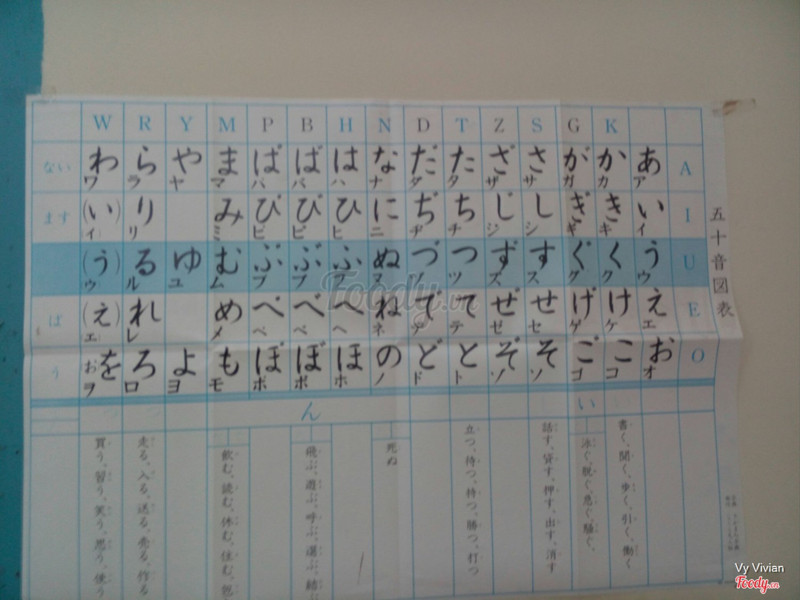 五十音図表
W R Y M P B H N D T Z S G K
ない わ ら や ま ぱ ば は な だ た ざ さ が か あ A
ワ ラ ヤ マ パ バ ハ ナ ダ タ ザ サ ガ カ ア
ます (い) り み ぴ び ひ に ぢ ち じ し ぎ き い I
(イ) リ ミ ピ ビ ヒ ニ ヂ チ ジ シ ギ キ イ
(う) る ゆ む ぷ ぶ ふ ぬ づ つ ず す ぐ く う U
ウ ル ユ ム プ ブ フ ヌ ヅ ツ ズ ス グ ク ウ
ば (え) れ め ぺ べ へ ね で て ぜ せ げ け え E
(エ) レ メ ペ ベ ヘ ネ デ テ ゼ セ ゲ ケ エ
う を ろ よ も ぽ ぼ ほ の ど と ぞ そ ご こ お O
お ヲ ロ ヨ モ ポ ボ ホ ノ ド ト ゾ ソ ゴ コ オ
ん い
書く、聞く、歩く、引く、働く
泳ぐ、脱ぐ、急ぐ、騒ぐ、
話す、貸す、押す、出す、消す
立つ、待つ、持つ、勝つ、打つ
死ぬ
飛ぶ、遊ぶ、呼ぶ、選ぶ、結
飲む、読む、休む、住む、
走る、入る、送る、売る、作る
買う、習う、笑う、思う、使う
Foody.vn
Vy Vivian
Foody.vn